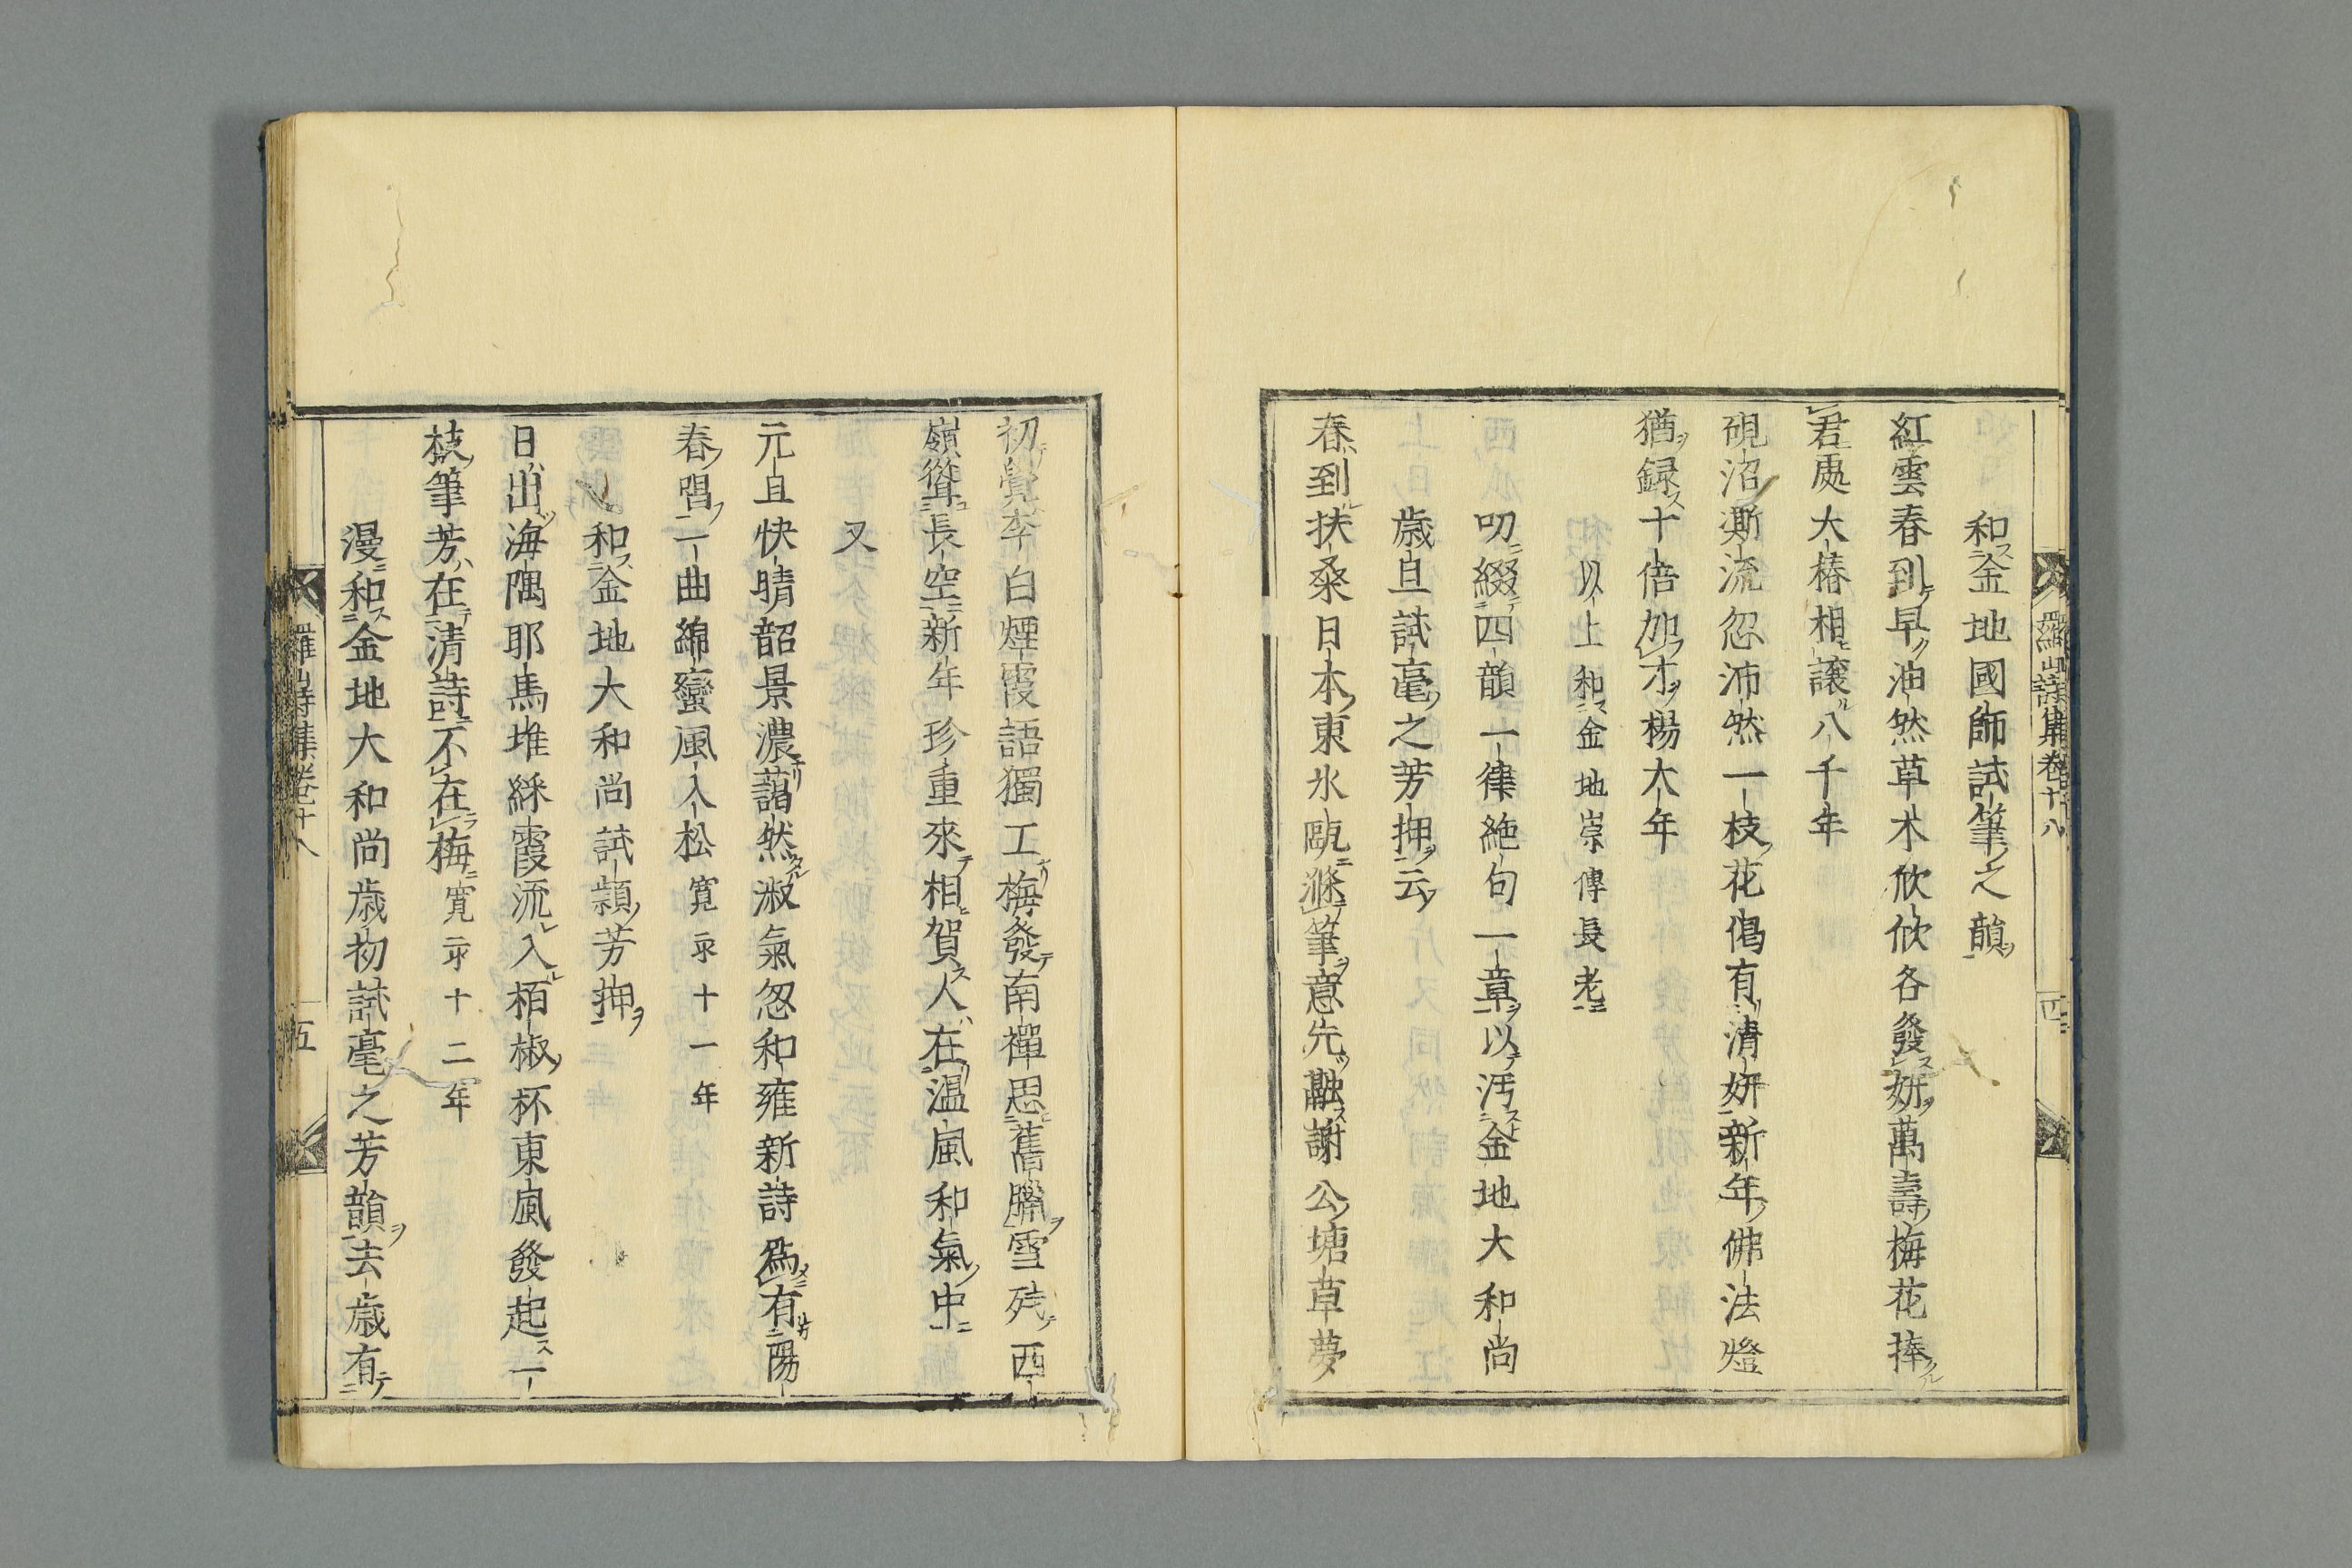 羅山詩集卷三十八
四
和金地國師試筆之韻
紅雲春到早油然草木欣欣各發妍萬壽梅花捧
君處大椿相讓八千年
硯沼澌流忽沛然一枝花偈有清妍新年佛法燈
猶録十倍加才楊大年
以上和金地崇傳長老
叨綴四韻一律絶句一章以汚金地大和尚
歳旦試毫之芳押云
春到扶桑日本東氷甌滌筆意先融謝公塘草夢
初覺李白煙霞語獨工梅發南禪思舊臘雪殘西
嶺聳長空新年珍重來相賀人在温風和氣中
又
元旦快晴韶景濃藹然淑氣忽和雍新詩爲有陽
春唱一曲綿蠻風入松 寛永十一年
和金地大和尚試頴芳押
日出海隅耶馬堆綵霞流入栢椒杯東風發起一
枝筆芳在清詩不在梅 寛永十二年
漫和金地大和尚歳初試毫之芳韻去歳有
羅山詩集卷三十八
五